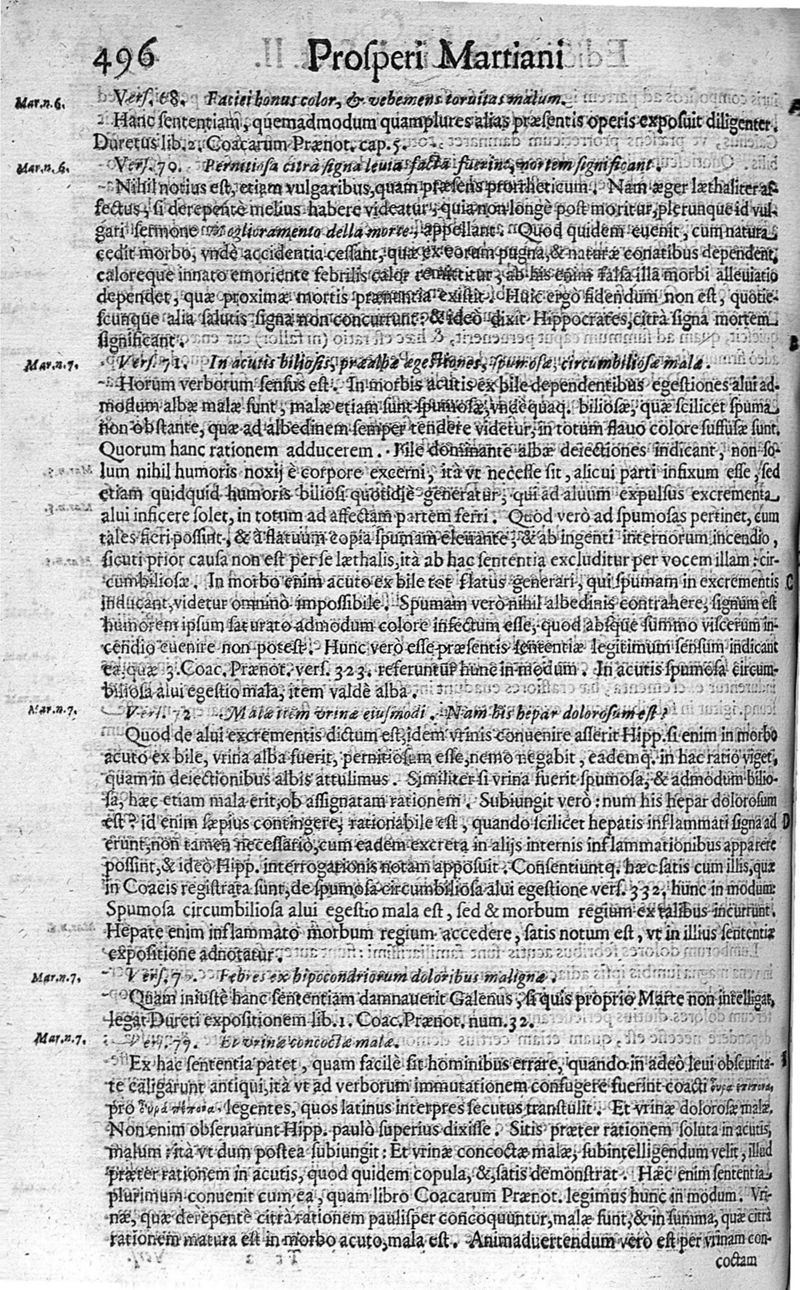 496 Prosperi Martiani
Mar.n.6. Vers. 68. Faciei bonus color, & vehemens toruitas malum.
Hanc sententiam, quemadmodum quamplures alias præsentis operis exposuit diligenter
Duretus lib. 2. Coacarum Prænot. cap. 5.
Mar.n.6. Vers. 70. Pernitiosa citrà signa leuia facta fuerint, mortem significant.
Nihil notius est, etiam vulgaribus, quam præsens prorrheticum. Nam æger læthaliter af-
fectus, si derepentè melius habere videatur, quia non longè post moritur, plerunque id vul-
gari sermone Meglioramento della morte, appellant. Quod quidem euenit, cum natura
cedit morbo, vndè accidentia cessant, quæ ex eorum pugna, & naturæ conatibus dependent,
caloreque innato emoriente febrilis calor remittitur, ab his enim falsa illa morbi alleuiatio
dependet, quæ proximæ mortis prænuncia existit. Huic ergò fidendum non est, quotie-
scunque alia salutis signa non concurrunt: & ideò dixit Hippocrates, citrà signa mortem
significant.
Mar.n.7. Vers. 71. In acutis biliosis, præalbæ egestiones, spumosæ, circumbiliosæ malæ.
Horum verborum sensus est. In morbis acutis ex bile dependentibus egestiones alui ad-
modum albæ malæ sunt, malæ etiam sunt spumosæ, vndequaq. biliosæ, quæ scilicet spuma
non obstante, quæ ad albedinem semper tendere videtur, in totum flauo colore suffusæ sunt.
Quorum hanc rationem adducerem. Bile dominante albæ deiectiones indicant, non so-
lum nihil humoris noxij è corpore excerni, ità vt necesse sit, alicui parti infixum esse, sed
etiam quidquid humoris biliosi quotidiè generatur, qui ad aluum expulsus excrementa
alui inficere solet, in totum ad affectam partem ferri. Quod verò ad spumosas pertinet, cum
tales fieri possint, & à flatuum copia spumam eleuante, & ab ingenti internorum incendio,
sicuti prior causa non est per se læthalis, ità ab hac sententia excluditur per vocem illam: cir-
cumbiliosæ. In morbo enim acuto ex bile tot flatus generari, qui spumam in excrementis
inducant, videtur omninò impossibile. Spumam verò nihil albedinis contrahere, signum est
humorem ipsum saturato admodum colore infectum esse, quod absque summo viscerum in-
cendio euenire non potest. Hunc verò esse præsentis sententiæ legitimum sensum indicant
ea, quæ 3. Coac. Prænot. vers. 323. referuntur hunc in modum. In acutis spumosa circum-
biliosa alui egestio mala, item valdè alba.
Mar.n.7. Vers. 72. Malæ item vrinæ eiusmodi. Nam his hepar dolorosum est?
Quod de alui excrementis dictum est, idem vrinis conuenire asserit Hipp. si enim in morbo
acuto ex bile, vrina alba fuerit, pernitiosam esse, nemo negabit, eademq. in hac ratio viget,
quam in deiectionibus albis attulimus. Similiter si vrina fuerit spumosa, & admodum bilio-
sa, hæc etiam mala erit, ob assignatam rationem. Subiungit verò: num his hepar dolorosum
est? id enim sæpius contingere, rationabile est, quando scilicet hepatis inflammati signa ad
erunt, non tamen necessariò, cum eadem excreta in alijs internis inflammationibus apparere
possint, & ideò Hipp. interrogationis notam apposuit. Consentiuntq. hæc satis cum illis, quæ
in Coacis registrata sunt, de spumosa circumbiliosa alui egestione vers. 332. hunc in modum:
Spumosa circumbiliosa alui egestio mala est, sed & morbum regium ex talibus incurrunt.
Hepate enim inflammato morbum regium accedere, satis notum est, vt in illius sententiæ
expositione adnotatur.
Mar.n.7. Vers. Febres ex hipocondriorum doloribus malignæ.
Quam iniustè hanc sententiam damnauerit Galenus, si quis proprio Marte non intelligat,
legat Dureti expositionem lib. 1. Coac. Prænot. num. 32.
Mar.n.7. Vers. Et vrinæ concoctæ malæ.
Ex hac sententia patet, quam facilè sit hominibus errare, quando in adeò leui obscurita-
te caligarunt antiqui, ità vt ad verborum immutationem confugere fuerint coacti
pro legentes, quos latinus interpres secutus transtulit. Et vrinæ dolorosæ malæ.
Non enim obseruarunt Hipp. paulò superius dixisse. Sitis præter rationem soluta in acutis,
malum: ità vt dum postea subiungit: Et vrinæ concoctæ malæ, subintelligendum velit, illud
præter rationem in acutis, quod quidem copula, &, satis demonstrat. Hæc enim sententia
plurimum conuenit cum ea, quam libro Coacarum Prænot. legimus hunc in modum. Vri-
næ, quæ derepentè citrà rationem paulisper concoquuntur, malæ sunt, & in summa, quæ citrà
rationem matura est in morbo acuto, mala est. Animaduertendum verò est per vrinam con-
coctam